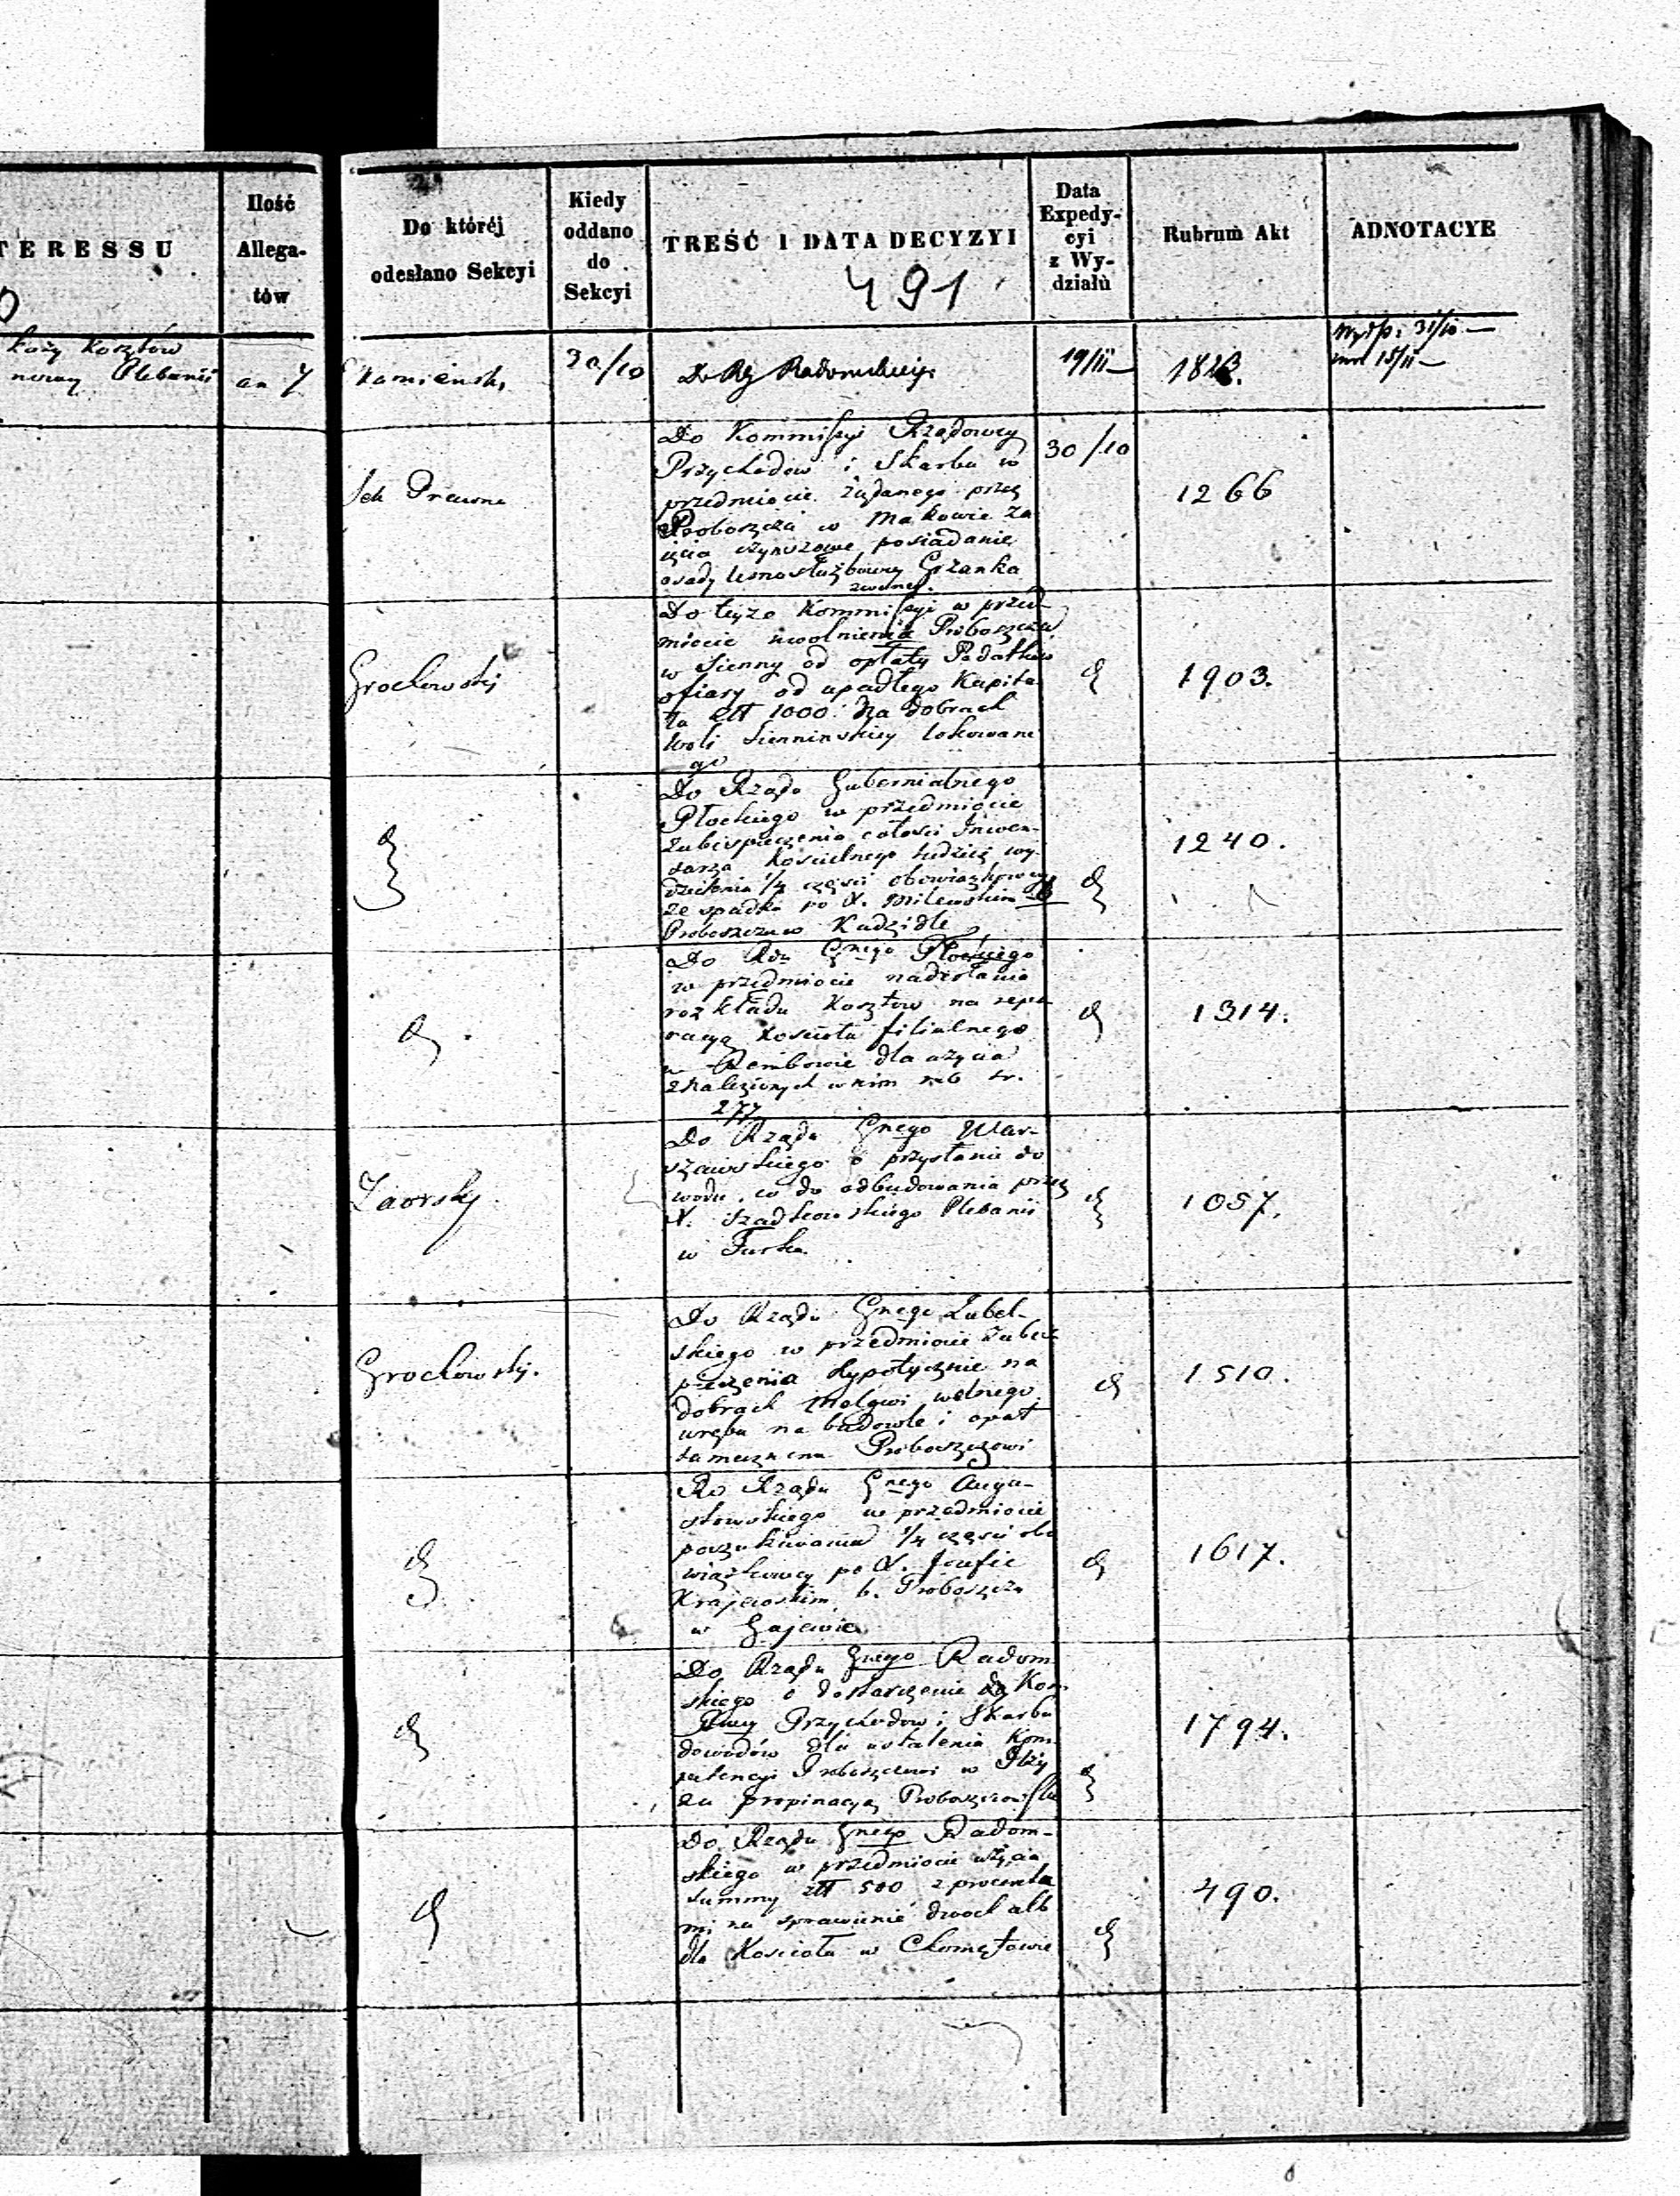 TERESSU
Ilość
Allega-
tów
Do któréj
odesłano Sekcyi
Kiedy
oddano
do
Sekcyi
TREŚĆ I DATA DECYZYI
491
Data
Expedy-
cyi
z Wy-
działù
Rubrum Akt
ADNOTACYE
Kosztów
nowey Plebanii
an 7
Kamieński
30/10
Do Rz Radomskiego
19/11
31/10
15/11
Do Kommissyi Rządowey
Przychodów i Skarbu w
przedmiocie żądanego przez
Proboszcza w Makowie za
osady Grzanka
zwaney.
Sek Prawna
30/10
1266
Do teyże Kommissyi w przed-
miocie uwolnienia Proboszcza
w Sienny od opłaty Podatków
ofiary od upadłego Kapita-
łu złł 1000 na dobrach
Woli Sienninskiey lokowane
go
Grochowski
1903.
Do Rządu Gubernialnego
Płockiego w przedmiocie
zabespieczenia całości Inwen-
tarza Kościelnego tudzież wy-
dzielenia 1/4 części obowiązkowey
ze spadku po X. Milewskim
Proboszczu w Kadzidle
1240.
Do Rdu Gnego Płockiego
w przedmiocie nadesłania
rozkładu Kosztów na repe-
racyą Kościoła filialnego
w Rembowie dla użycia
znalezionych w nim rub sr.
277
1314.
Do Rządu Gnego War-
szawskiego o przysłanie do
wodu, co do odbudowania przez
X. Szadkowskiego Plebanii
w Turku.
Zaorski
1057.
Do Rządu Gnego Lubel-
skiego w przedmiocie zabez-
pieczenia Hypotycznie na
dobrach Mełgwi wolnego
wrębu na budowle i opał
tameznemu Proboszczowi
Grochowski.
1510.
Do Rządu Gnego Augu-
stowskiego w przedmiocie
poszukiwania 1/4 części obo
wiązkowey po X. Józefie
Krajewskim b. Proboszczu
w Gajewie
1617.
Do Rządu Gnego Radom-
skiego o dostarczenie do Kom.
Rwey Przychodów i Skarbu
dowodów dla ustalenia Kom-
petencyi Proboszczowi w Iłży
za propinacyą
1794.
Do Rządu Gnego Radom-
skiego w przedmiocie użycia
summy złł 500 z procenta
mi na sprawienie dwoch alb
dla Kościoła w Chomętowie
490.